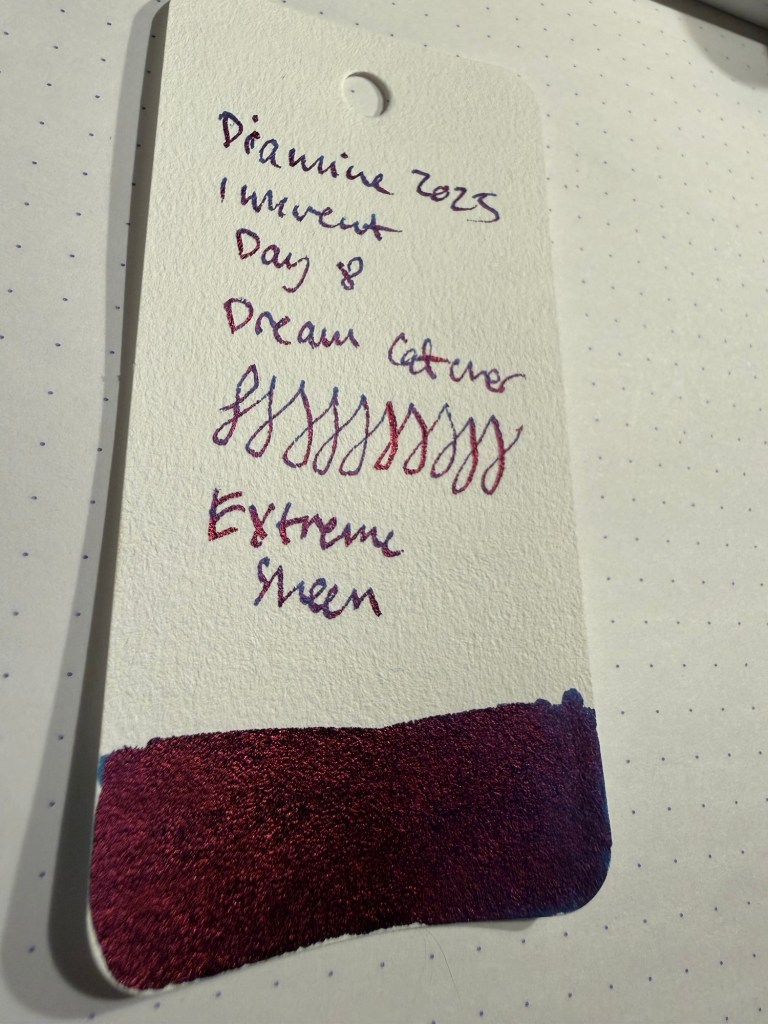 Diamine 2025
Inkvent
Day 8
Dream Catcher
Extreme
Sheen